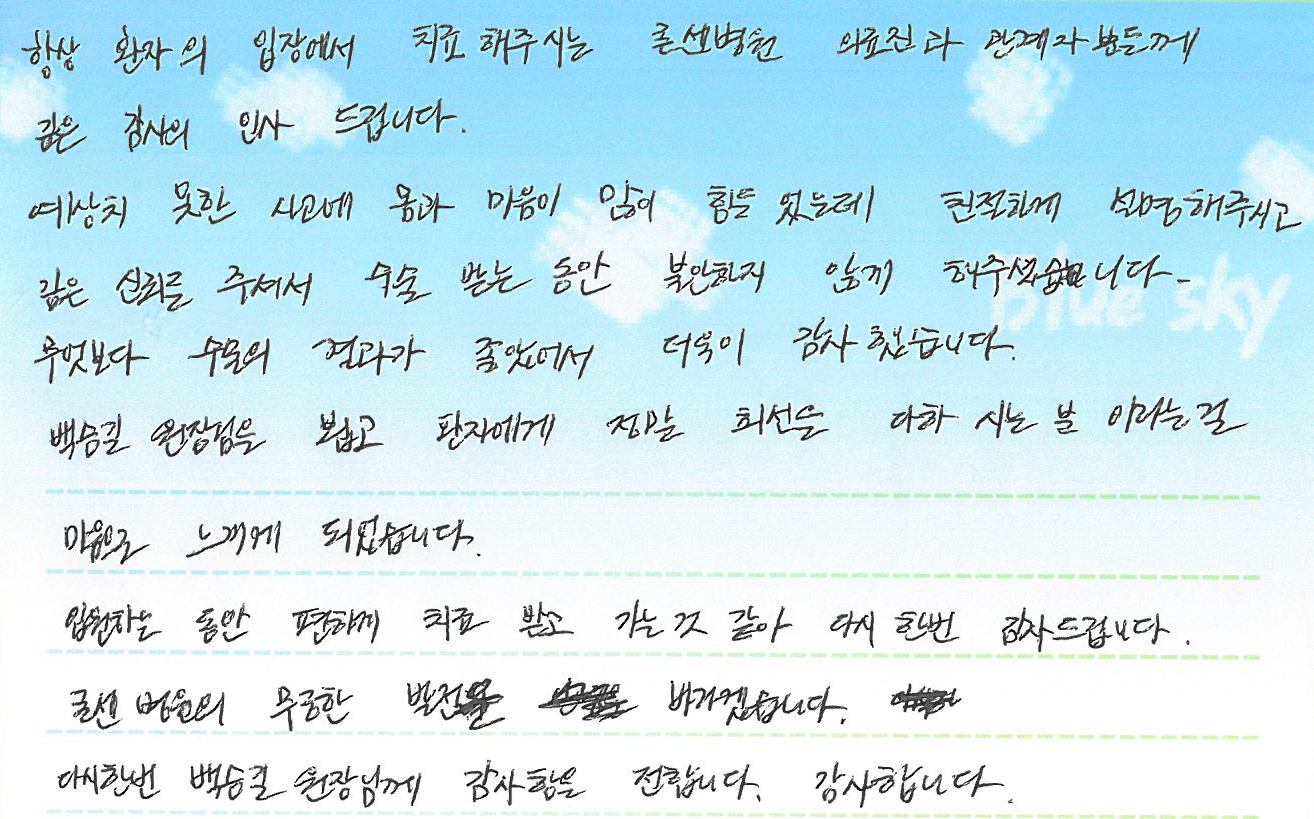 항상 환자의 입장에서 치료 해주시는 본센병원 의료진과 관계자분들께
깊은 감사의 인사 드립니다.
예상치 못한 사고에 몸과 마음이 많이 힘들었는데 친절하게 설명해주시고
깊은 신뢰를 주셔서 수술 받는 동안 불안하지 않게 해주셨습니다.
blue sky
무엇보다 수술의 결과가 좋았어서 더욱이 감사했습니다.
백승길 원장님을 뵙고 환자에게 정말 최선을 다하시는 분 이라는걸
마음으로 느끼게 되었습니다.
입원하는 동안 편하게 치료 받고 가는것 같아 다시 한번 감사드립니다.
병원의 무궁한 발전을 바라겠습니다.
다시한번 백승길 원장님께 감사함을 전합니다. 감사합니다.